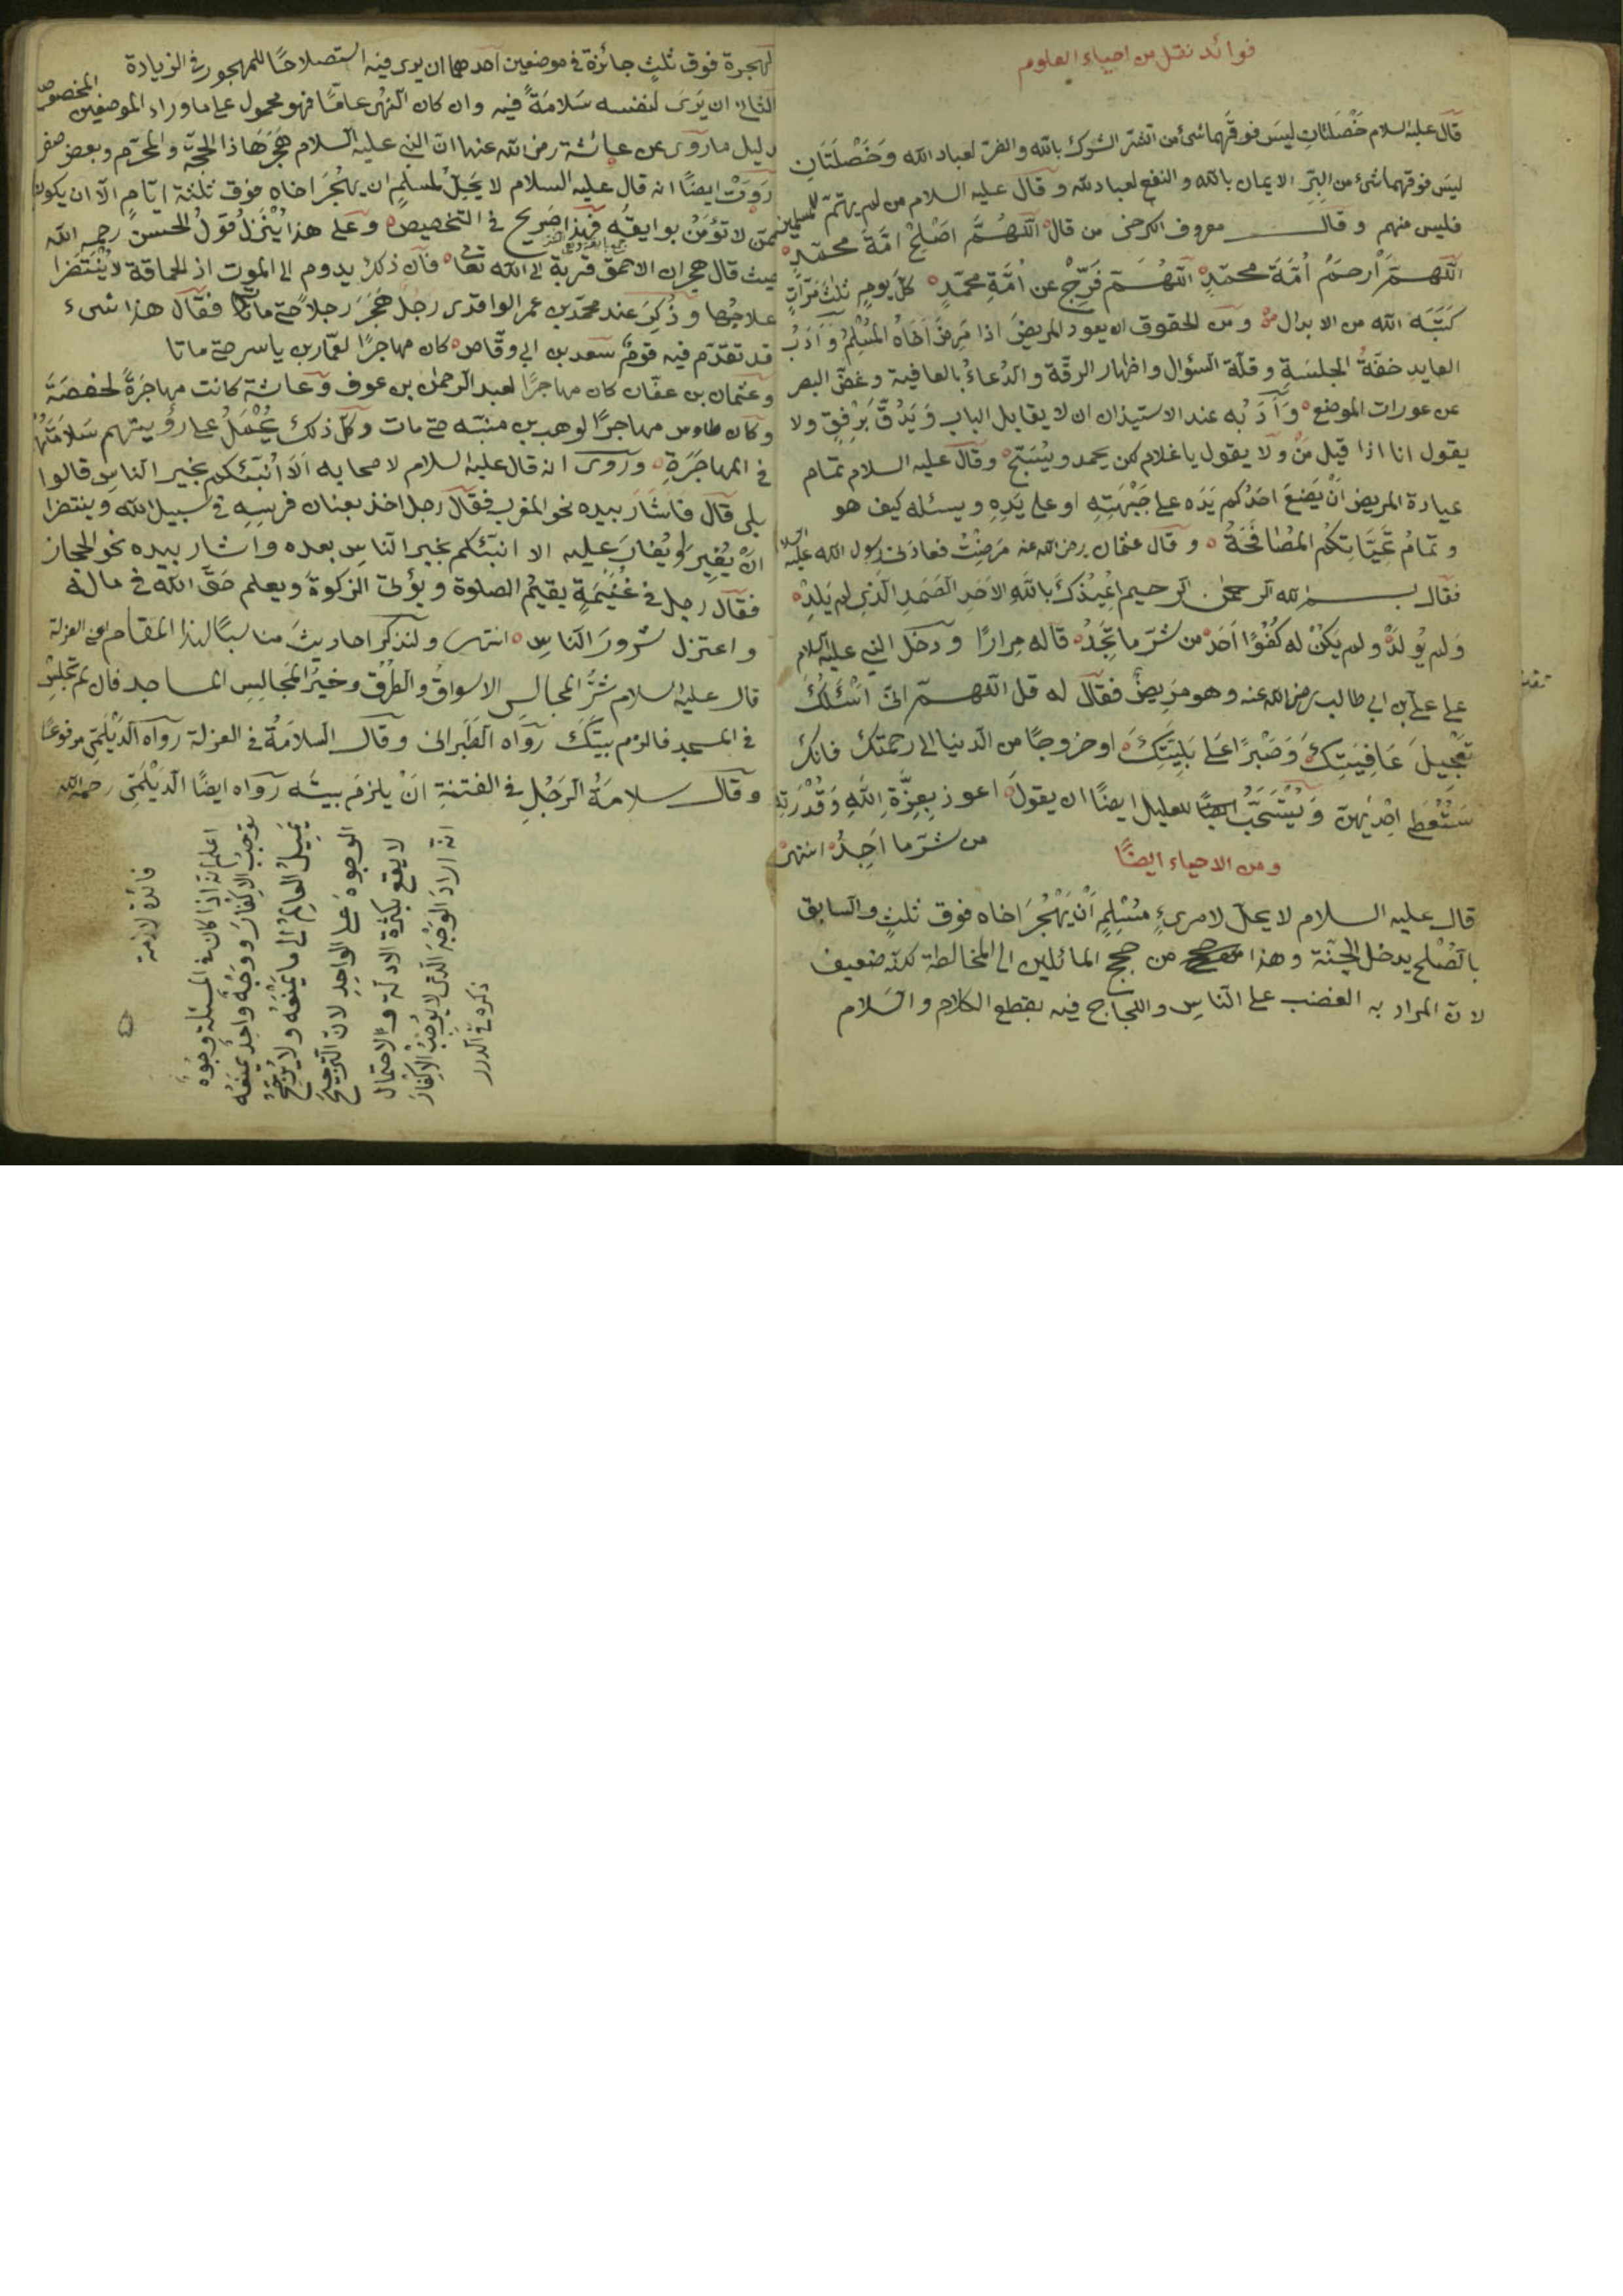 فوائد نقل من احياء العلوم
قال عليه السلام خَصْلتان ليسَ فوقهما شئ من الشرّ الشرك بالله والضرّ لعباد الله وَخَصْلَتَانِ
ليسَ فوقهما شئ من البِرِّ الايمان بالله والنفع لعباد لله وقال عليه السلام من لم يهتمّ للمسلمين
فليس منهم وقال معروف الكرخى من قال اللهُمَّ اَصْلِحْ اُمَّةَ محمّدٍ
اللّهمّ ارحمْ اُمَّةَ محمّدٍ اللّهُمّ فَرِّجْ عن اُمَّةِ محمّدٍ كلَّ يومٍ ثلثَ مَرَّاتٍ
كَتَبَه الله من الابدال ومن الحقوق ان يعود المريضَ اذا مَرِضَ اَخَاهُ المُسْلِمُ وَاَدَبُ
العايد خفّةُ الجلسَةِ وقلّة السّؤال واظهار الرقّة والدّعاءُ بالعافية وغضّ البصر
عن عورات الموضع وَاَدَبُه عند الاستيذان ان لا يقابل الباب وَيَدُقَّ بَرْفِقٍ ولا
يقول انا اذا قيل مَنْ وَلا يقول يا غلام لكن يحمد ويُسَبّح وقال عليه السلام تمام
عيادة المريض اَنْ يَضَعَ احدُكم يَدَه على جَبْهَتِهِ او على يَدِهِ ويسئله كيف هو
وتمامُ تَحِيَّاتِكُم المُصَافَحَةُ وقال عثمان رضى الله عنه مَرِضْتُ فعادنى رسول الله عليه السلام
فقال بسم الله الرحمن الرحيم اُعِيْذُكَ بالله الاَحَدِ الصَّمَدِ الَّذِى لم يَلِدْ
وَلم يُولَدْ ولم يَكُنْ له كُفُوًا اَحَدٌ من شَرّ ما تَجِدُ قاله مِرارًا ودخَلَ النبى عليه السلام
على علىّ بن ابى طالب رضى الله عنه وهو مَرِيضٌ فقال له قل اللّهمّ انّى اَسْئَلُكَ
تَعْجِيلَ عَافِيَتِكَ وَصَبْرًا عَلى بَلِيَّتِكَ او خروجًا من الدّنيا الى رحمتك فانكَ
سَتُعْطٰى اِحْدٰيهُنّ وَيُسْتَحَبُّ للعليل ايضًا ان يقولَ اعوذ بِعِزَّةِ اللهِ وَقُدْرَتِهِ
من شرّ ما اَجِدُ انتهى
ومن الاحياء ايضًا
قال عليه السلام لا يحلّ لامرىءٍ مُسْلِمٍ اَنْ يَهْجُرَ اخاه فوق ثلثٍ والسابق
بالصُّلْح يدخل الجنّة وهذا من حجج المائلين الى المخالطة لكنّه ضعيف
لانّ المراد به الغضب على الناسِ واللجاج فيه بقطع الكلام والسّلام
الهجرة فوق ثلثٍ جائزة فى موضعين احدهما ان يرى فيه استصلاحًا للمهجور فى الزيادة
الثانى ان يَرَىَ لنفسه سَلامَةً فيه وان كان النّهى عامًّا فهو محمول على ما وراء الموضعين المخصوصين
دليل ما رَوَى عن عائشة رضى الله عنها انّ النبى عليه السلام هَجَرَهَا ذا الحِجّة والمحرّم وبعض صفر
رَوَتْ ايضًا انه قال عليه السلام لا يَحِلّ لمُسْلِمٍ ان يهْجُرَ اخاه فوق ثلثة ايّامٍ الّا ان يكون
ممّن لا تُؤمَنُ بوايقُه فهذا صَرِيحٌ فى التخصيص وعلى هذا يُنْزَلُ قَولُ الحسنِ رحمه الله
حيث قال هجران الاحمق قربة الى الله تعالى فان ذلك يدوم الى الموت اذ الحماقة لا يُنْتَظَرُ
علاجُها وذُكِرَ عند محمّد بن عمر الواقدى رجلٌ هَجَرَ رجلاً حتى ماتا فقال هذا شىء
قد تقدّم فيه قومٌ سَعد بن ابى وقّاص كان مهاجرًا لعمّار بن ياسر حتى ماتا
وعثمان بن عفّان كان مهاجرًا لعبد الرّحمن بن عوف وعائشة كانت مهاجرَةً لحفصَةَ
وكان طاوس مهاجرًا لوهب بن منبّه حتى مات وكلّ ذلك يُحْمَلُ على رؤيتهم سَلامَتَهُمْ
فى المهاجَرَةِ وروى انه قال عليه السلام لاصحابه اَلَا اُنَبّئكم بخير النّاسِ قالوا
بلى قال فَاَشَارَ بيده نحو المغرب فقال رجل اخذ بعنان فرسِهِ فى سبيل الله وينتظر
انْ يُغِيرَ اَو يُغَارَ عليه الا انبّئكم بخير النّاسِ بعده واشار بيده نحو الحجاز
فقال رجل فى غُنَيْمَةٍ يقيمُ الصلوة ويؤتى الزكوةَ ويعلم حقّ الله فى ماله
واعتزل شُرورَ النّاسِ انتهى ولنذكر احاديثَ مناسبًا لهذا المقام اعنى العزلة
قال عليه السلام شَرُّ المجالسِ الاسواقُ والطُرُقُ وخيرُ المجَالِسِ المساجد فان لم تجلِسْ
فى المسجد فالزم بيتَكَ رواه الطّبرانى وقال السلامَةُ فى العزلة رواه الدّيْلَمِى مرفوعًا
وقال سلامَةُ الرّجُلِ فى الفتنةِ انْ يلزمَ بيتَه رواه ايضًا الدّيْلَمِى رحمه الله
فائدة لازمة
اعلم انّه اذا كان فى المسئلة وجُوهٌ
توجبُ الاكفارَ ووَجْهٌ واحِدٌ يمنَعُه
يميلُ العالِمُ الى ما يَمْنَعُه ولا يُرَجّحُ
الوجوهَ على الواحدِ لانّ الترجيح
لا يقع بكثرة الادلّة ولاحتمال
انّه اراد الوجهَ الذى لا يُوجِبُ الاكفارَ
ذكره فى الدرر